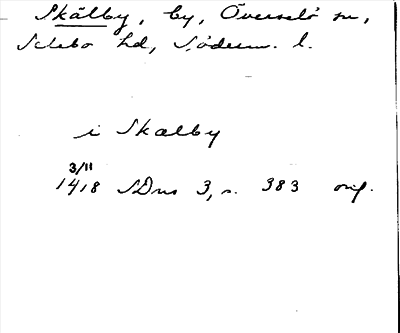 Skälby, by, Överselö sn,
Selebo hd, Söderm. l.
i Skalby
3/11
1418 SDns 3, s. 383 orig.